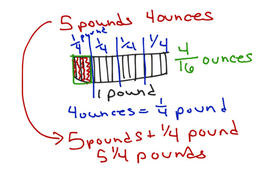 5 pounds 4ounces
1/4 pound 1/4 1/4 1/4
4/16 ounces
1 pound
4ounces = 1/4 pound
5pounds + 1/4 pound
5 1/4 pounds